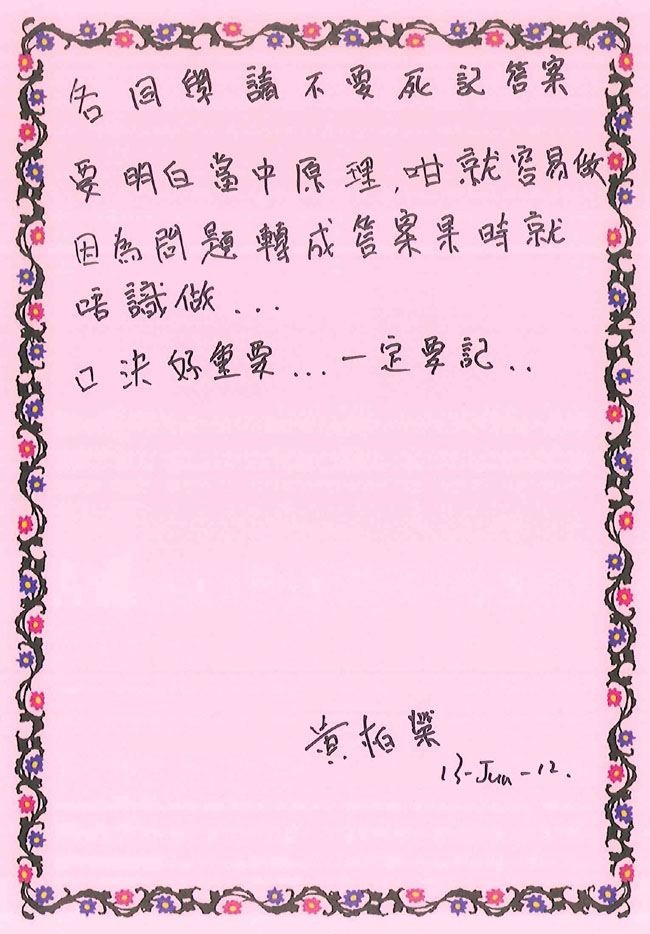 各同學請不要死記答案
要明白當中原理,咁就容易做
因為問題轉成答案果時就
唔識做...
口決好重要...一定要記..
黃柏榮
13-Jun-12.